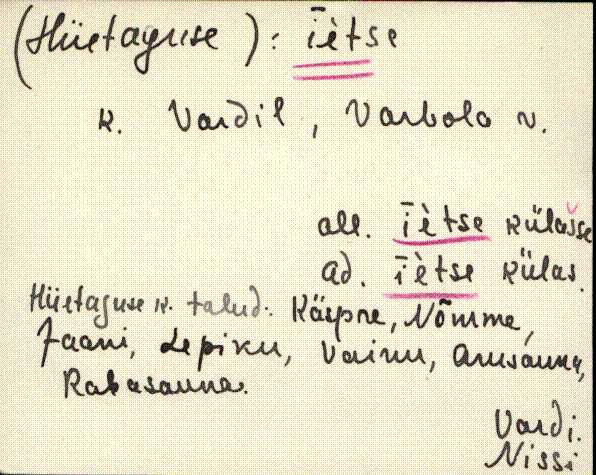 (Hüetaguse): īètse
k. Vardil, Varbola v.
all. īètse külašse
ad. īètse külas.
Hüetaguse k. talud: Käspre, Nõmme,
Jaani, Lepiku, Vainu, Arusauna,
Rabasauna.
Vardi.
Nissi